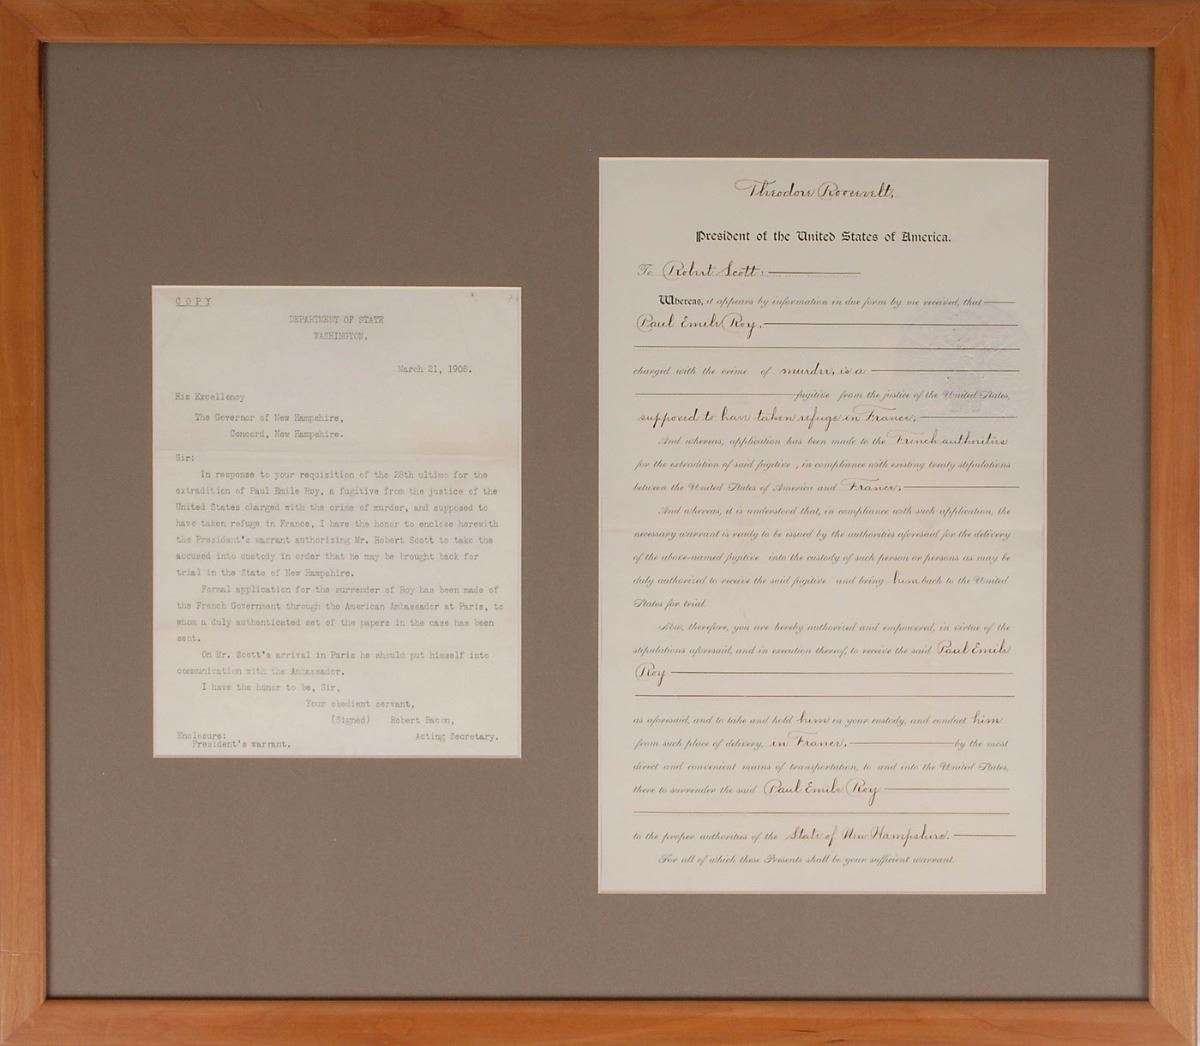 COPY
DEPARTMENT OF STATE
WASHINGTON.
March 21, 1908.
His Excellency
The Governor of New Hampshire,
Concord, New Hampshire.
Sir:
In response to your requisition of the 28th ultimo for the
extradition of Paul Emile Roy, a fugitive from the justice of the
United States charged with the crime of murder, and supposed to
have taken refuge in France, I have the honor to enclose herewith
the President's warrant authorizing Mr. Robert Scott to take the
accused into custody in order that he may be brought back for
trial in the State of New Hampshire.
Formal application for the surrender of Roy has been made of
the French Government through the American Ambassador at Paris, to
whom a duly authenticated set of the papers in the case has been
sent.
On Mr. Scott's arrival in Paris he should put himself into
communication with the Ambassador.
I have the honor to be, Sir,
Your obedient servant,
(Signed) Robert Bacon,
Acting Secretary.
Enclosure:
President's warrant.
Theodore Roosevelt,
President of the United States of America.
To Robert Scott:
Whereas, it appears by information in due form by me received, that
Paul Emile Roy,
charged with the crime of murder, is a
fugitive from the justice of the United States,
supposed to have taken refuge in France;
And whereas, application has been made to the French authorities
for the extradition of said fugitive, in compliance with existing treaty stipulations
between the United States of America and France;
And whereas, it is understood that, in compliance with such application, the
necessary warrant is ready to be issued by the authorities aforesaid for the delivery
of the above-named fugitive into the custody of such person or persons as may be
duly authorized to receive the said fugitive and bring him back to the United
States for trial.
Now, therefore, you are hereby authorized and empowered, in virtue of the
stipulations aforesaid, and in execution thereof, to receive the said Paul Emile
Roy
as aforesaid, and to take and hold him in your custody, and conduct him
from such place of delivery, in France, by the most
direct and convenient means of transportation, to and into the United States,
there to surrender the said Paul Emile Roy
to the proper authorities of the State of New Hampshire.
For all of which these Presents shall be your sufficient warrant.